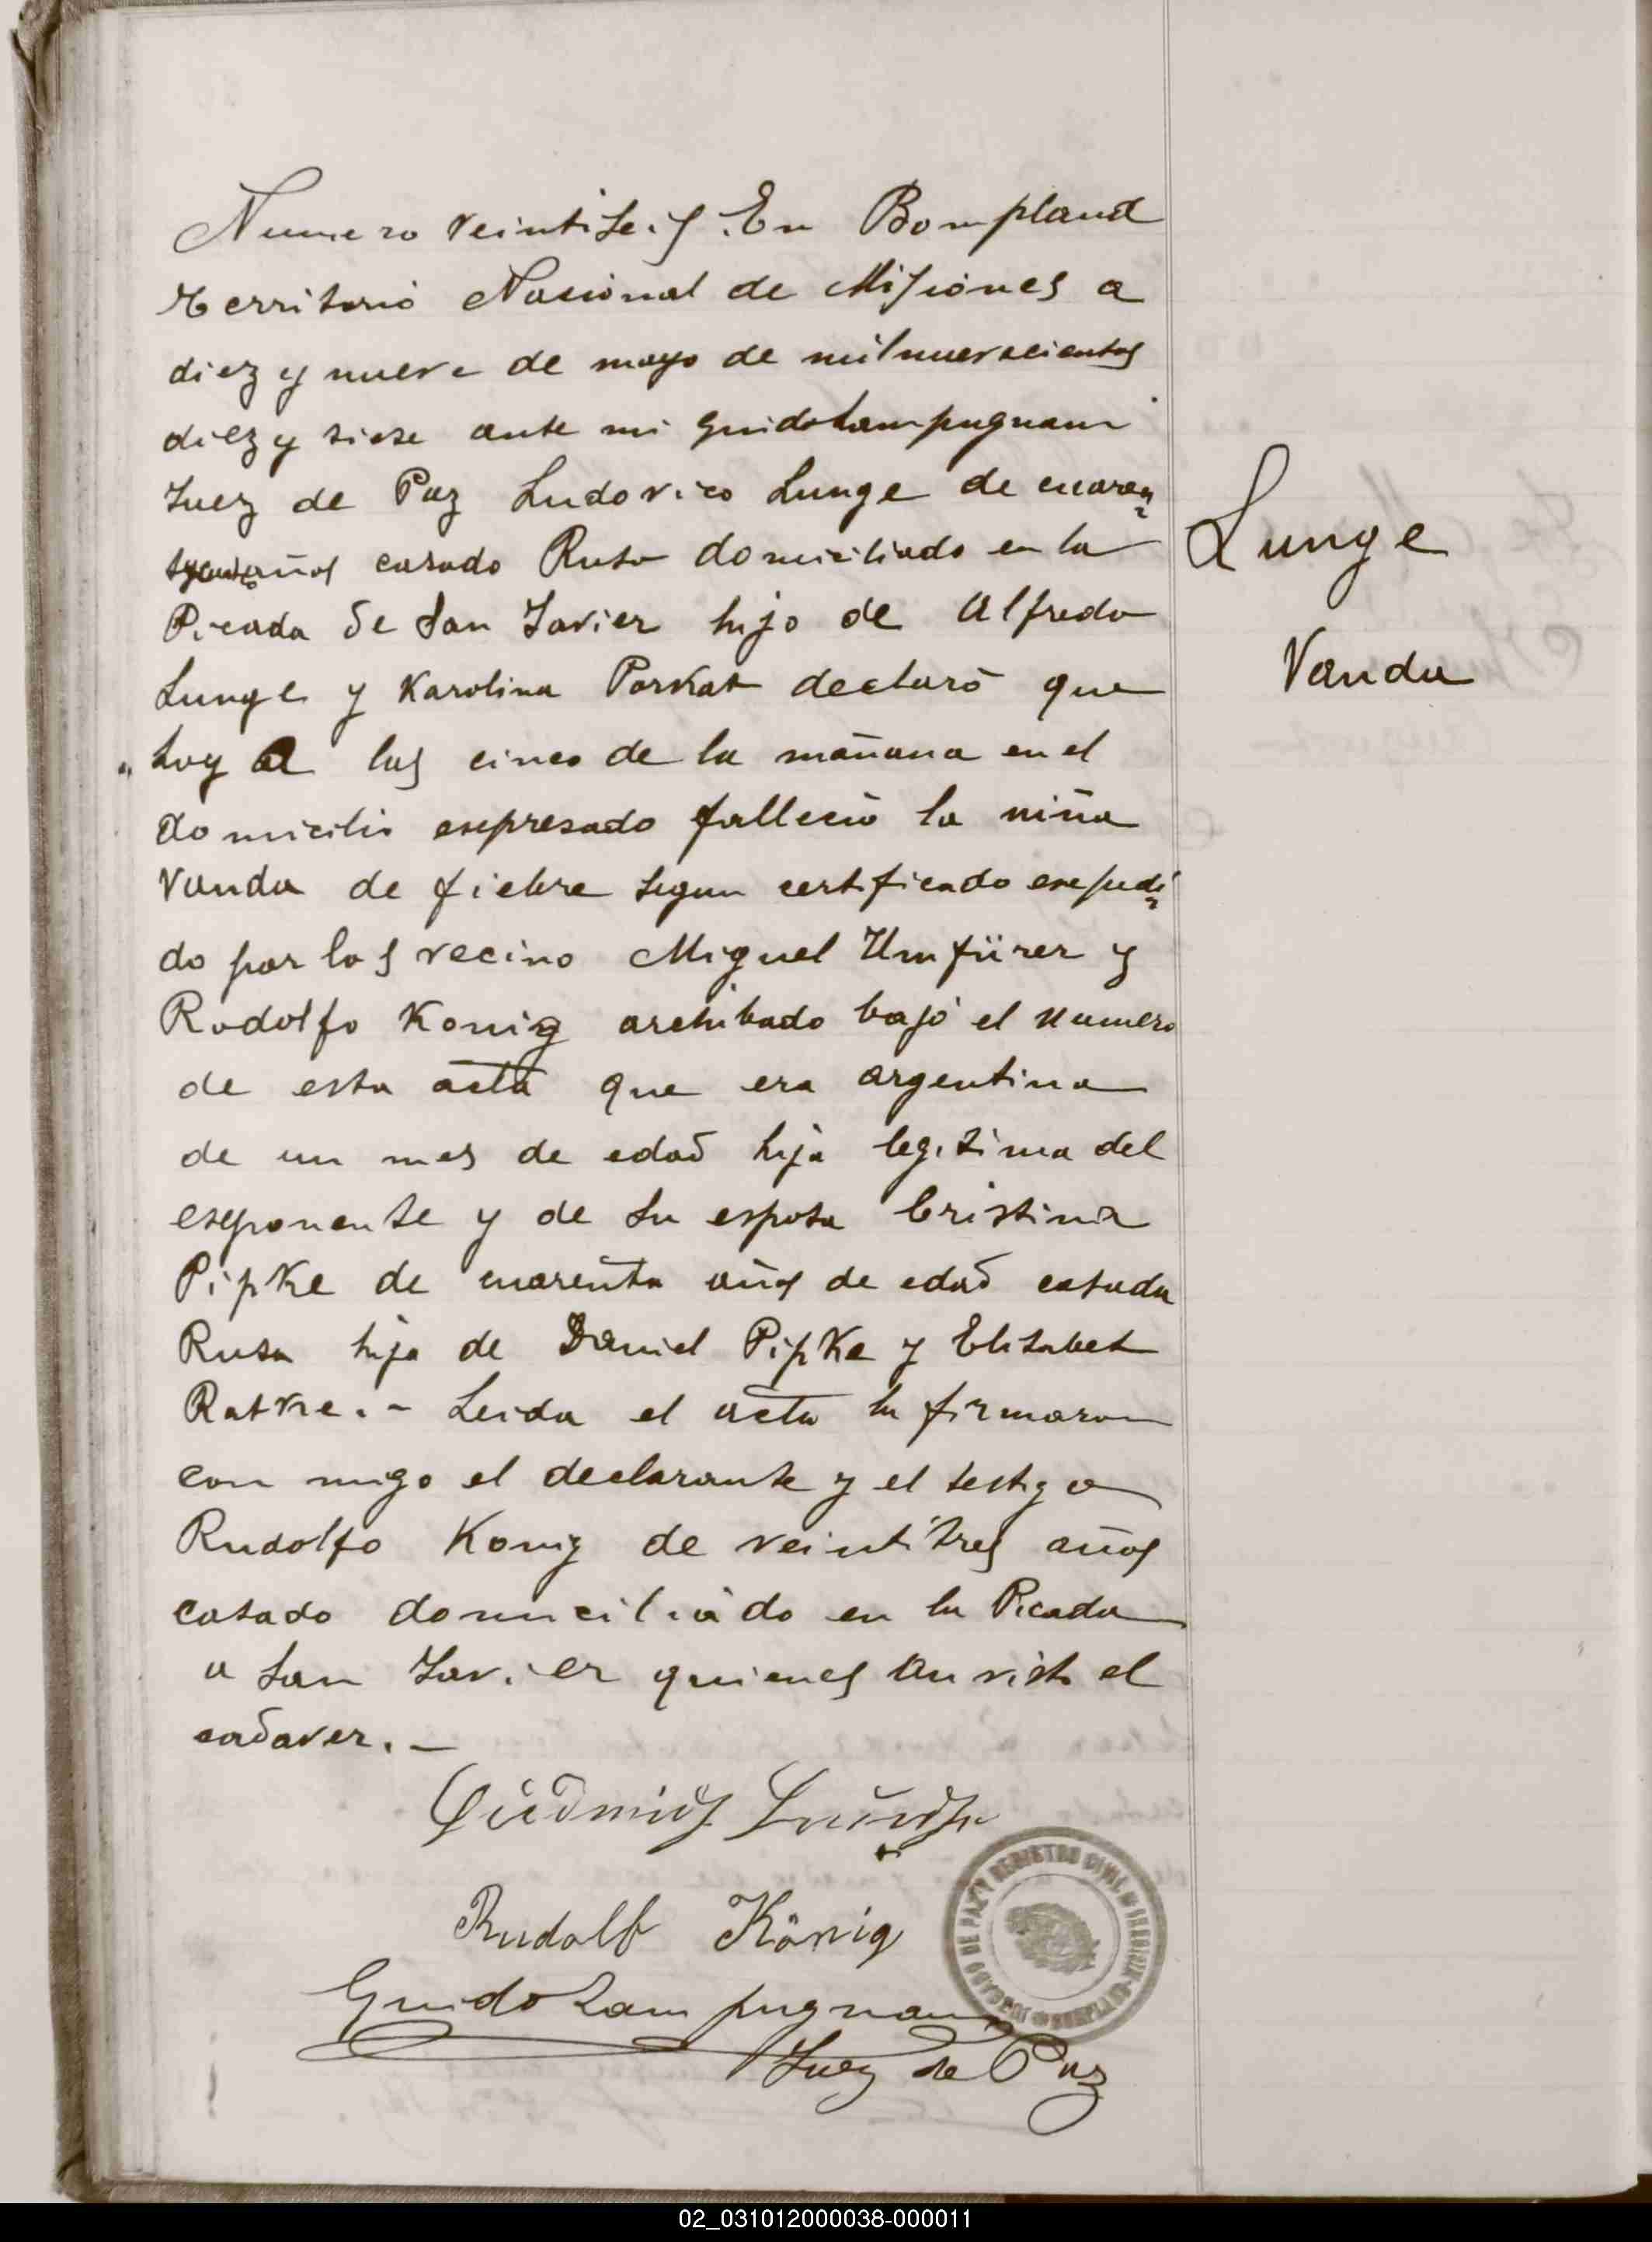 Numero veintiseis. En Bompland
Territorio Nacional de Misiones a
diez y nueve de mayo de milnuevecientos
diez y siete ante mi Guido Lampugnani
Juez de Paz Ludovico Lunge de cuaren
años casado Ruso domiciliado en la
Picada de San Javier hijo de Alfredo
Lunge y Karolina declaró que
hoy a las cinco de la mañana en el
domicilio espresado falleció la niña
Vanda de fiebre segun certificado espedi
do por los vecino Miguel Umfürer y
Rodolfo Konig archibado bajo el numero
de esta acta que era argentina
de un mes de edad hija legitima del
esponente y de su esposa Cristina
Pipke de cuarenta años de edad casada
Rusa hija de Daniel Pipke y Elisabet
Ratke.- Leida el acta la firmaron
con migo el declarante y el testigo
Rudolfo Konig de veintitres años
casado domiciliado en la Picada
a San Javier quienes an visto el
cadaver.-
Lunge
Vanda
Rudolf König
Guido Lampugnani
Juez de Paz
JUZGADO DE PAZ Y REGISTRO CIVIL
02_031012000038-000011